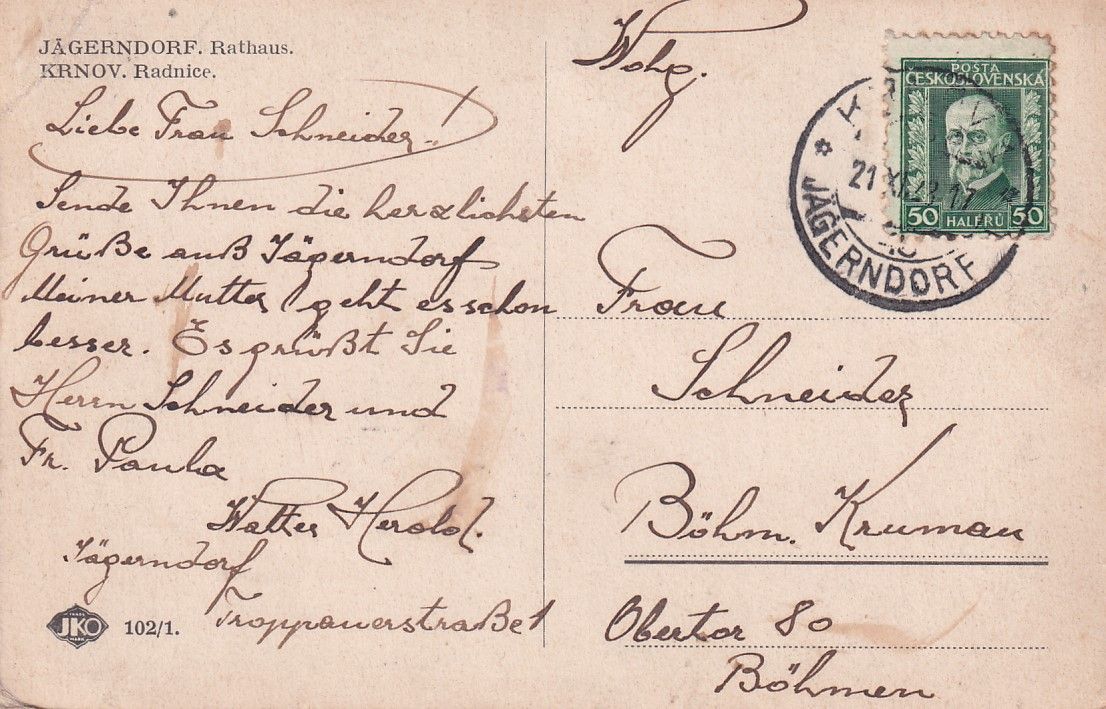 JÄGERNDORF. Rathaus.
KRNOV. Radnice.
Liebe Frau Schneider!
Sende Ihnen die herzlichsten
Grüße auß Jägerndorf
Meiner Mutter geht es schon
besser. Es grüßt Sie
Herrn Schneider und
Fr. Paula
Walter Herold.
Jägerndorf
Troppauerstraße 1
JKO
102/1.
Wohlg.
POSTA
ČESKOSLOVENSKÁ
50 HALÉŘŮ 50
21 XI
JÄGERNDORF
Frau
Schneider
Böhm. Krumau
Obertor 80
Böhmen